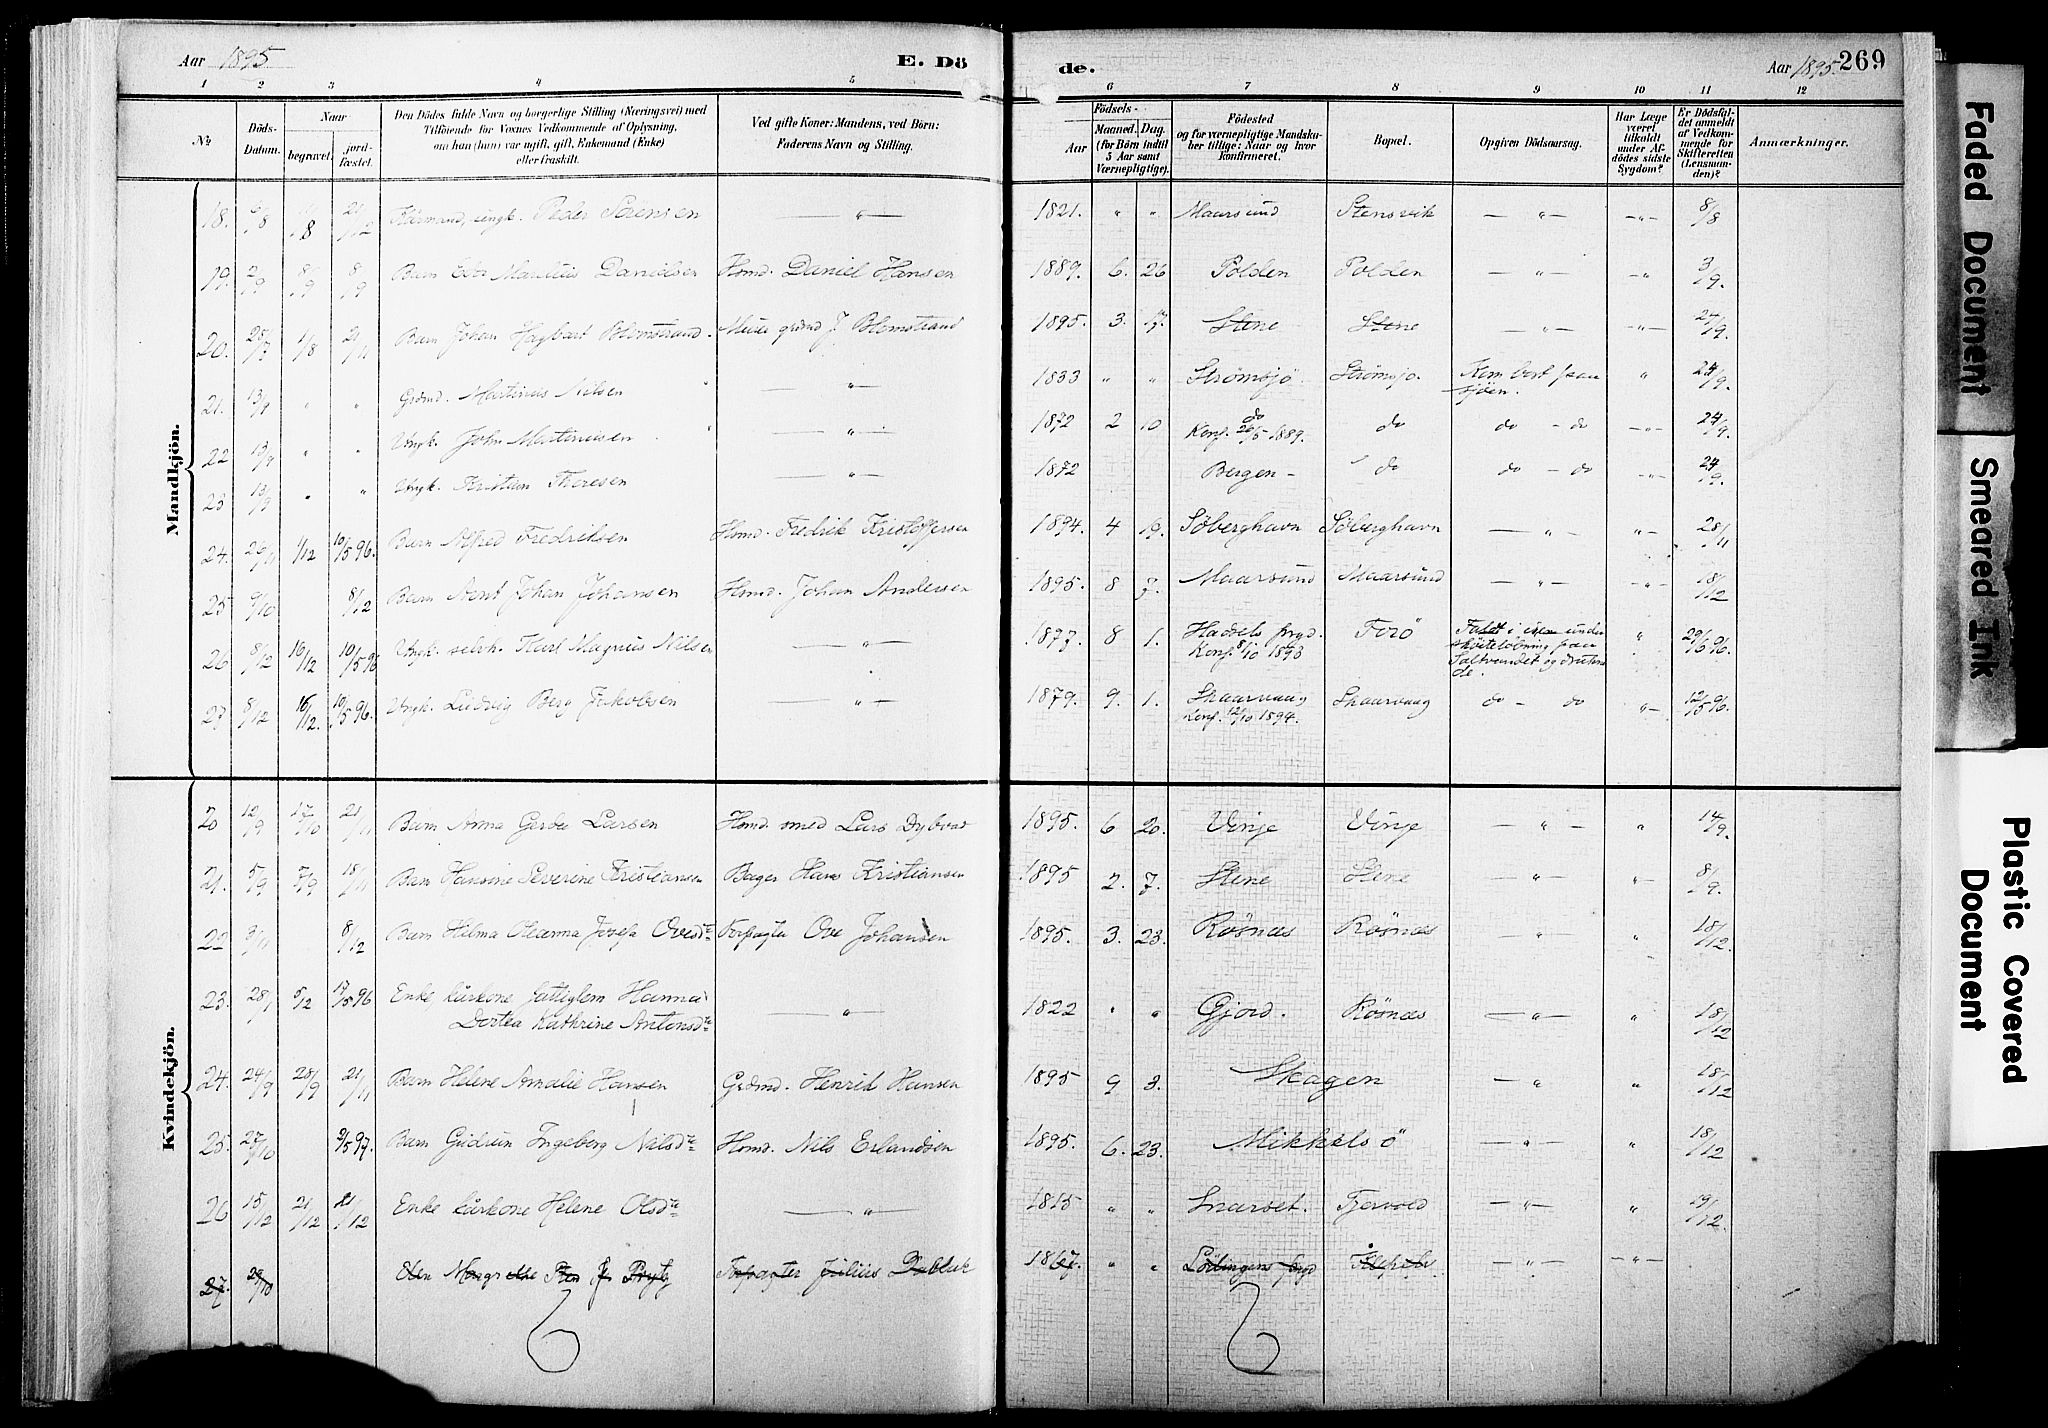 Aar 1895
E. Dö
de.
Aar 1895. 269
1 2 3 4 5 6 7 8 9 10 11 12
No
Döds-
Datum.
Naar
begravet.
jord-
fæstet.
Den Dödes fulde Navn og borgerlige Stilling (Næringsvei) med
Tilföiende for Voxnes Vedkommende af Oplysning,
om han (hun) var ugift, gift, Enkemand (Enke)
eller fraskilt.
Ved gifte Koner: Mandens, ved Börn:
Faderens Navn og Stilling.
Födsels-
Aar
Maaned.
Dag.
(for Börn indtil
5 Aar samt
Værnepligtige).
Födested
og for værnepligtige Mandsku-
ber tillige: Naar og hvor
konfirmeret.
Bopæl.
Opgiven Dödsaarsag.
Har Læge
været
tilkaldt
under Af-
dödes sidste
Sygdom?
Er Dödsfal-
det anmeldt
af Vedkom-
mende for
Skifteretten
(Lensman-
den)?
Anmærkninger.
Mandkjön.
18. 21/12 Kårmand, ungk. Peder Sørensen — " — 1821. " " Maarsund Stensvik — " — —"— 8/8
19. 2/9 8/9 8/9 Barn Danielsen Hsmd. Daniel Hansen 1889. 6. 26 Polden Polden — " — —" 3/9.
20. 25/7 1/8 21/11 Barn Johan Hagbart Blomstrand. grdmd J. Blomstrand 1895. 3. 17. Stene Stene — " — —"— 24/9.
21. 13/9 " " Grdmd. Martinus Nilsen — " — 1833 " " Strømsjö Strømsjo. Kom bort paa " 24/9.
sjöen.
22 13/9 " " Ungk. John Martinusen — " — 1872 2 10 do do do - do —"— 24/9.
Konf. 26/5 1889.
23 13/9 " " Ungk. Kristian Thoresen — " — 1872 Bergen - do do - do —"— 24/9.
24. 26/11 1/12 10/5 96. Barn Alfred Fredriksen Hsmd. Fredrik Kristoffersen 1894. 4 19. Söberghavn Söberghavn — " — "— 28/11
25 9/10 8/12 Barn Arnt Johan Johansen Hsmd. Johan Andersen 1895. 8 7. Maarsund Maarsund — " — —"— 18/12
26 8/12 16/12 10/5 96 Ungk. selvh. Karl Magnus Nilsen — " — 1877. 8 1. Hadsels prgd. Forö under " 29/6 96.
Konf. 8/10 1893 skøiteløbning paa
Saltvandet og
de.
27 8/12 16/12. 10/5 96. Ungk. Ludvig Berg Jakobsen — " — 1879. 9. 1. Skaarvaag Skaarvaag do - do "— 12/5 96.
Konf. 12/10 1894.
Kvindekjön.
20 12/9 17/10 21/11 Barn Anna Gerda Larsen Hsmd. smed Lars Dybvad 1895. 6 20. Vinje Vinje — " — " 14/9.
21. 5/9 7/9 18/11 Barn Hansine Severine Kristiansen Bager Hans Kristiansen 1895 2. 7. Stene Stene — " — "— 8/9.
22 3/11 8/12 Barn Hilma Oleanna Josefa Ovesdtr Forpagter Ove Johansen 1895. 3. 23. Røsnæs Røsnæs — " — " 18/12.
23. 5/12 17/5 96 Enke kårkone fattiglem Hanna 1822 " " Gjord. Røsnæs — " — " 18/12
Dortea Kathrine Antonsdtr — " —
24. 24/9 28/9 21/11 Barn Helene Amalie Hansen Grdmd. Henrik Hansen 1895 9 3. Skagen — " " 18/12
25. 27/10 9/5 97. Barn Gudrun Ingeborg Nilsdtr Hsmd. Nils Erlandsen 1895. 6. 23. Mikkelsö — " — " 18/12
26 15/12 21/12 21/12 Enke kårkone Helene Olsdtr — " — 1815 " " Snarset. Tjervold — " — " 19/12.
27. 29/10 Forpagter Julius 1867. " " Lödingens prgd — " — —"—
6 6
Faded Document
Smeared Ink
Plastic Covered
Document